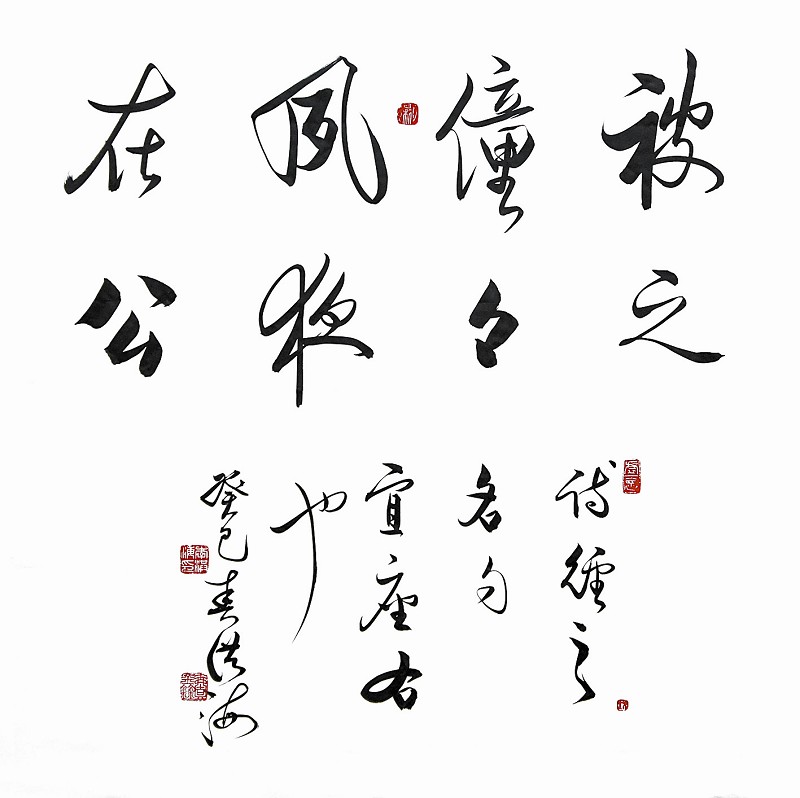 被之
僮々
夙夜
在公
诗经之
名句
宜座右
也
癸巳春洪海